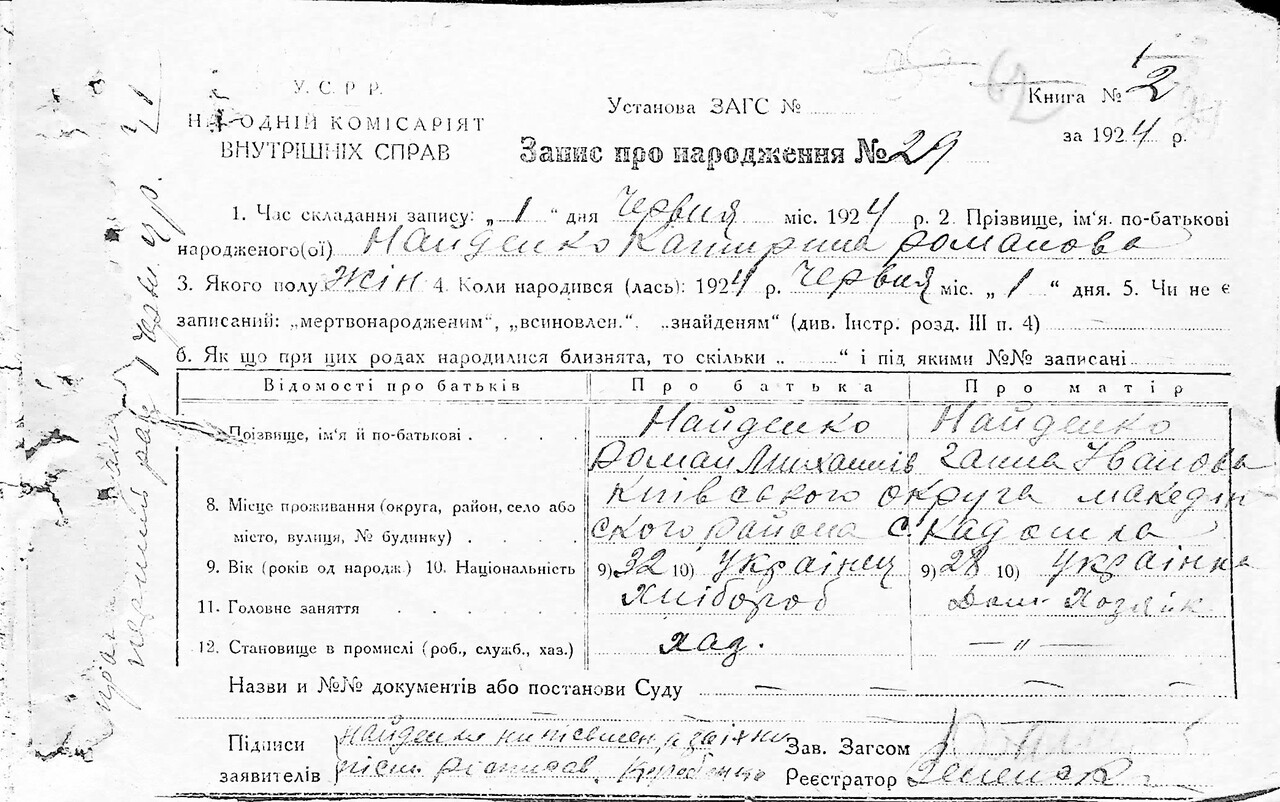 У.С.Р.Р.
НАРОДНІЙ КОМІСАРІЯТ
ВНУТРІШНІХ СПРАВ
Установа ЗАГС №
Книга № 2
за 1924 р.
62
Запис про народження № 29
1. Час складання запису: „ 1 “ дня Червня міс. 1924 р. 2. Прізвище, ім'я, по-батькові
народженого(ої) Найденко Катирина Романова
3. Якого полу жін 4. Коли народився (лась): 1924 р. Червня міс. „ 1 “ дня. 5. Чи не є
записаний: „мертвонародженим“, „всиновлен.“. „знайденям“ (див. Інстр. розд. III п. 4)
6. Як що при цих родах народилися близнята, то скільки „ “ і під якими №№ записані
Відомості про батьків Про батька Про матір
Прізвище, ім'я й по-батькові . . . . Найденко Найденко
Роман Михайлів Ганна Іванова
8. Місце проживання (округа, район, село або місто, вулиця, № будинку) . . . Київського округа
ского района с.
9. Вік (років од народж.) 10. Національність 9) 32 10) Українец 9) 28 10) Українка
11. Головне заняття . . . . Хлібороб Дом. Хозяйк
12. Становище в промислі (роб., служб., хаз.) хаз. — „ —
Назви и №№ документів або постанови Суду — — — —
Підписи Найденко
заявителів
Зав. Загсом
Реєстратор